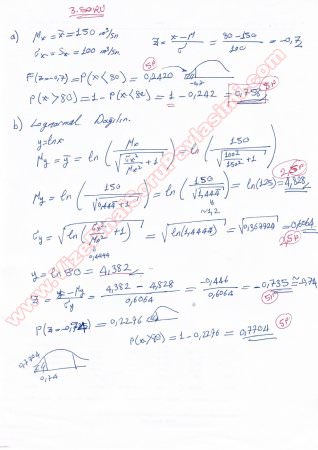 3. SORU
a) Mx = x̄ = 150 m³/sn    z = (x - M)/σ = (80 - 150)/100 = -0,7
σx = Sx = 100 m³/sn
F(z=-0,7) = P(x<80) = 0,2420 5P
P(x>80) = 1 - P(x<80) = 1 - 0,242 = 0,758
b) Lognormal Dağılım.
y = lnx
My = ȳ = ln( Mx / √(σx²/Mx² + 1) ) = ln( 150 / √(100²/150² + 1) )
My = ln( 150 / √(0,444 + 1) ) = ln( 150 / √1,444 ) = ln(125) = 4,828 2,5P
≈1,2
σy = √( ln( σx²/Mx² + 1 ) ) = √( ln(1,4444) ) = √0,367724 = 0,6064 2,5P
0,4444
y = ln 80 = 4,382
z = (y - My)/σy = (4,382 - 4,828)/0,6064 = -0,446/0,6064 = -0,735 ≈ -0,74
5P
P(z=-0,74) = 0,2296
P(x>80) = 1 - 0,2296 = 0,7704 5P
0,7704
0,74
www.VizeFinalSoruPaylasimi